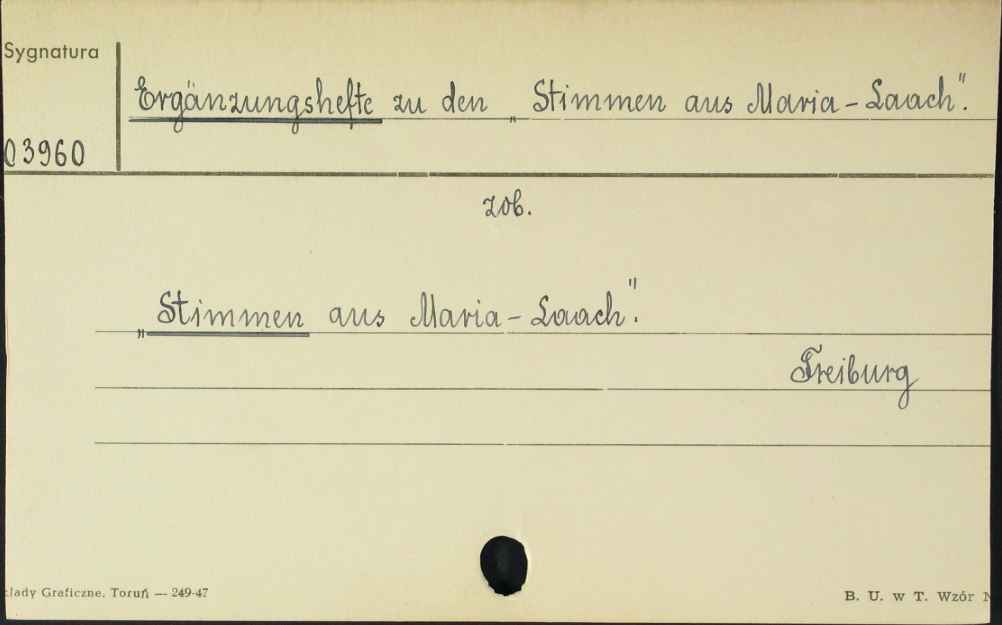 Sygnatura
Ergänzungshefte zu den „Stimmen aus Maria-Laach".
03960
zob.
„Stimmen aus Maria-Laach".
Freiburg
kłady Graficzne. Toruń — 249-47
B. U. w T. Wzór